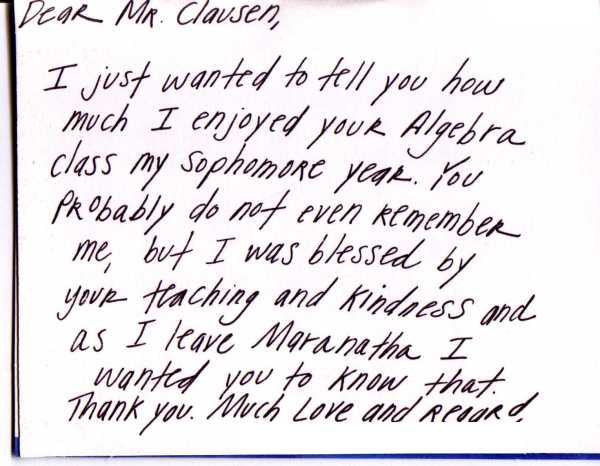 Dear Mr. Clausen,
I just wanted to tell you how
much I enjoyed your Algebra
class my sophomore year. You
probably do not even remember
me, but I was blessed by
your teaching and kindness and
as I leave Maranatha I
wanted you to know that.
Thank you. Much Love and Regard,